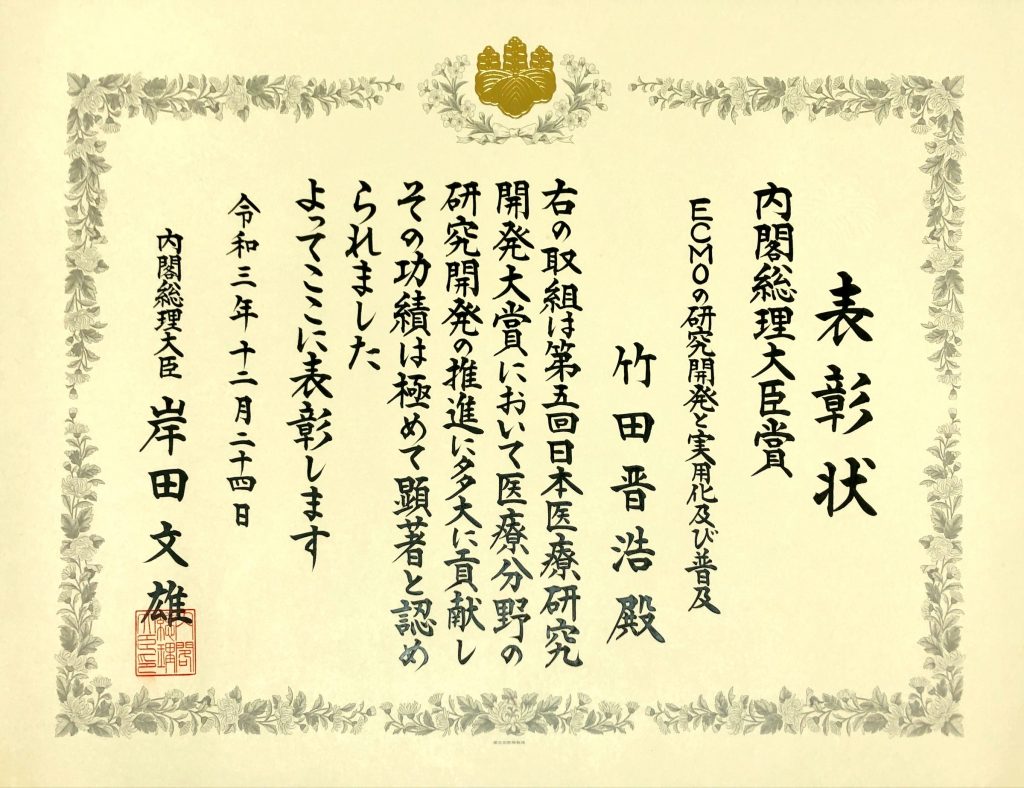 表彰状
内閣総理大臣賞
ECMOの研究開発と実用化及び普及
竹田晋浩殿
右の取組は第五回日本医療研究
開発大賞において医療分野の
研究開発の推進に多大に貢献し
その功績は極めて顕著と認め
られました
よってここに表彰します
令和三年十二月二十四日
内閣総理大臣 岸田文雄